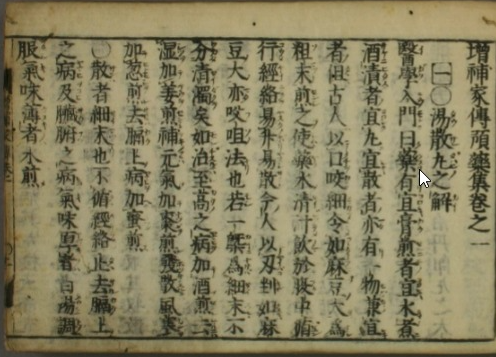 増補家傳預藥集巻之一
一〇湯散丸之解
醫學入門曰藥有宜膏煎者宜水煮
酒漬者宜丸宜散者亦有一物兼宜
者咀古人以口咬細令如麻豆大爲
粗末煎之使藥水清汁飲於腹中循
行經絡易升易散今人以刃剉如麻
豆大亦㕮咀法也若一槩爲細末不
分清濁矣如治至高之病加酒煎
湿加姜煎補元氣加棗煎發散風寒
加葱煎去膈上病加蜜煎
〇散者細末也不循經絡止去膈上
之病及臓腑之病氣味厚者白湯調
服氣味薄者水煎